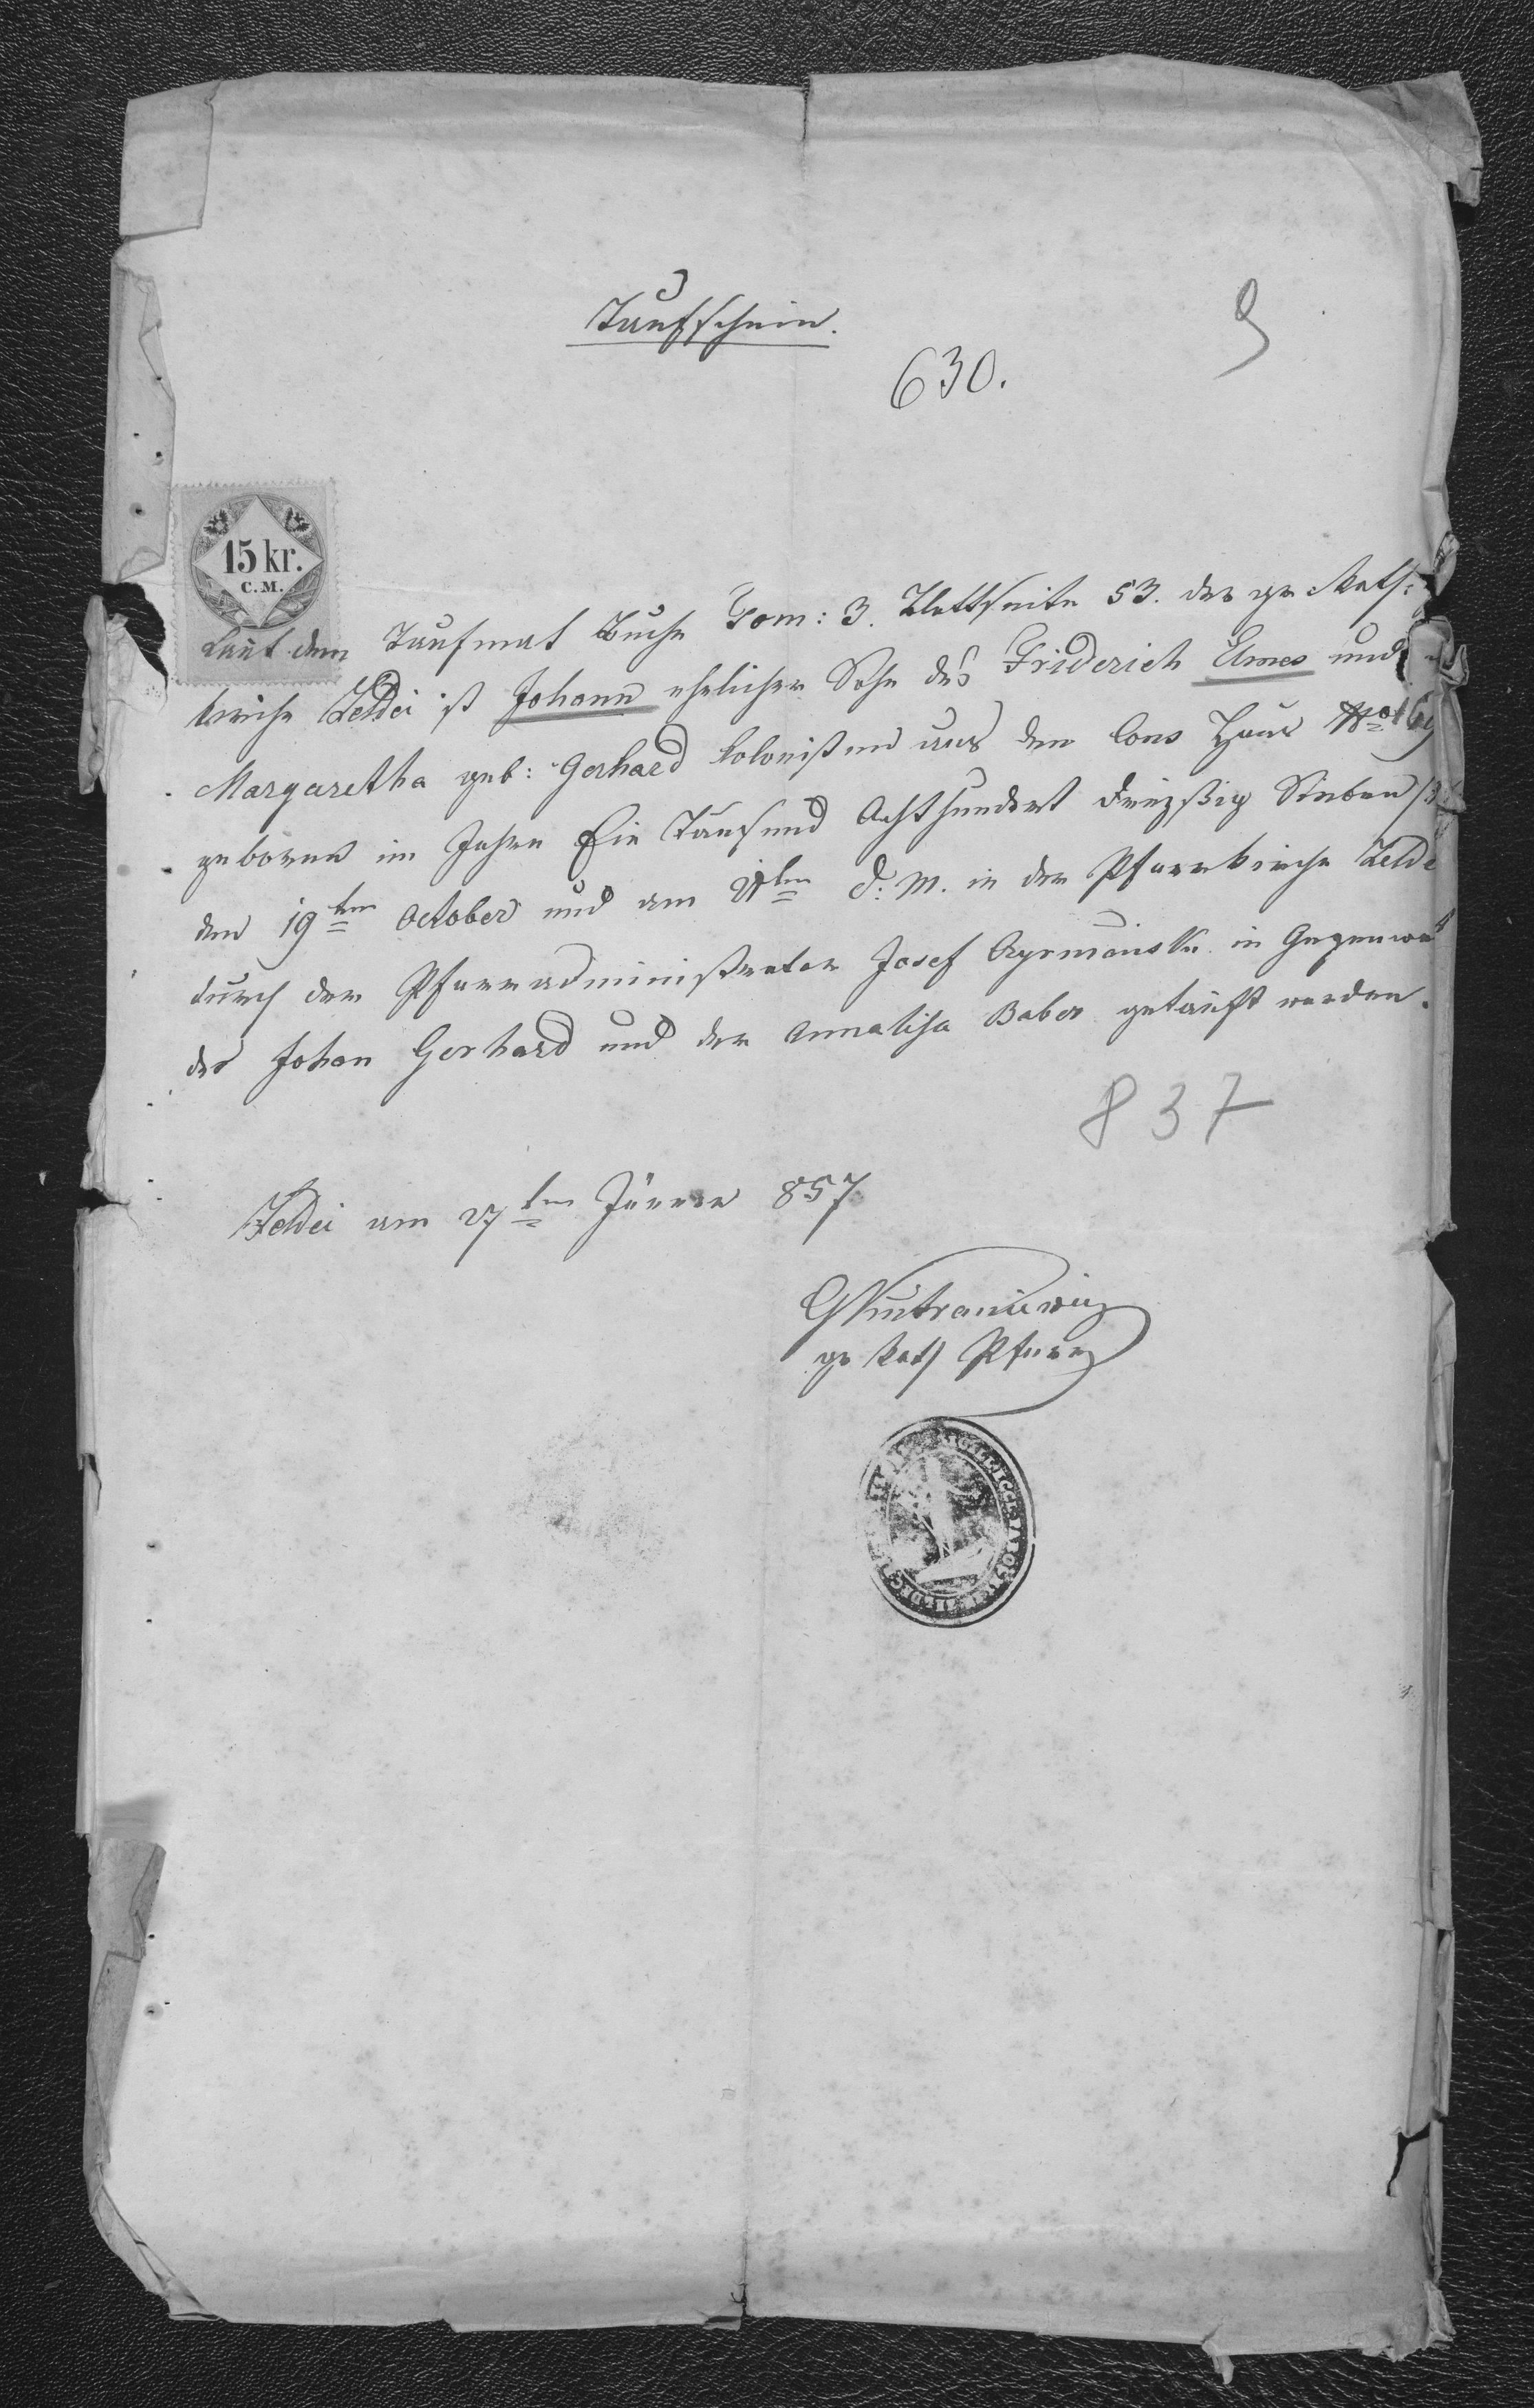 Taufschein.
9
630.
15 kr.
C.M.
Laut dem Taufmat Buche Tom: 3. Blattseite 53. der gr Kath:
kirche Zeldei ist Johann ehelicher Sohn des Friderich Elmes und
Margaretha geb: Gerhard Colonisten aus dem Cons Haus No
geboren im Jahre Ein Tausend Achthundert dreizßig Sieben
den 19ten October und am 21ten d: M. in der Pfarrkirche Zelde
durch den Pfarradministrator Josef in Gegenwart
des Johan Gerhard und der Annalisa Baber getauft worden.
837
Zeldei am 27ten Jänner 857
gr Kath Pfarr